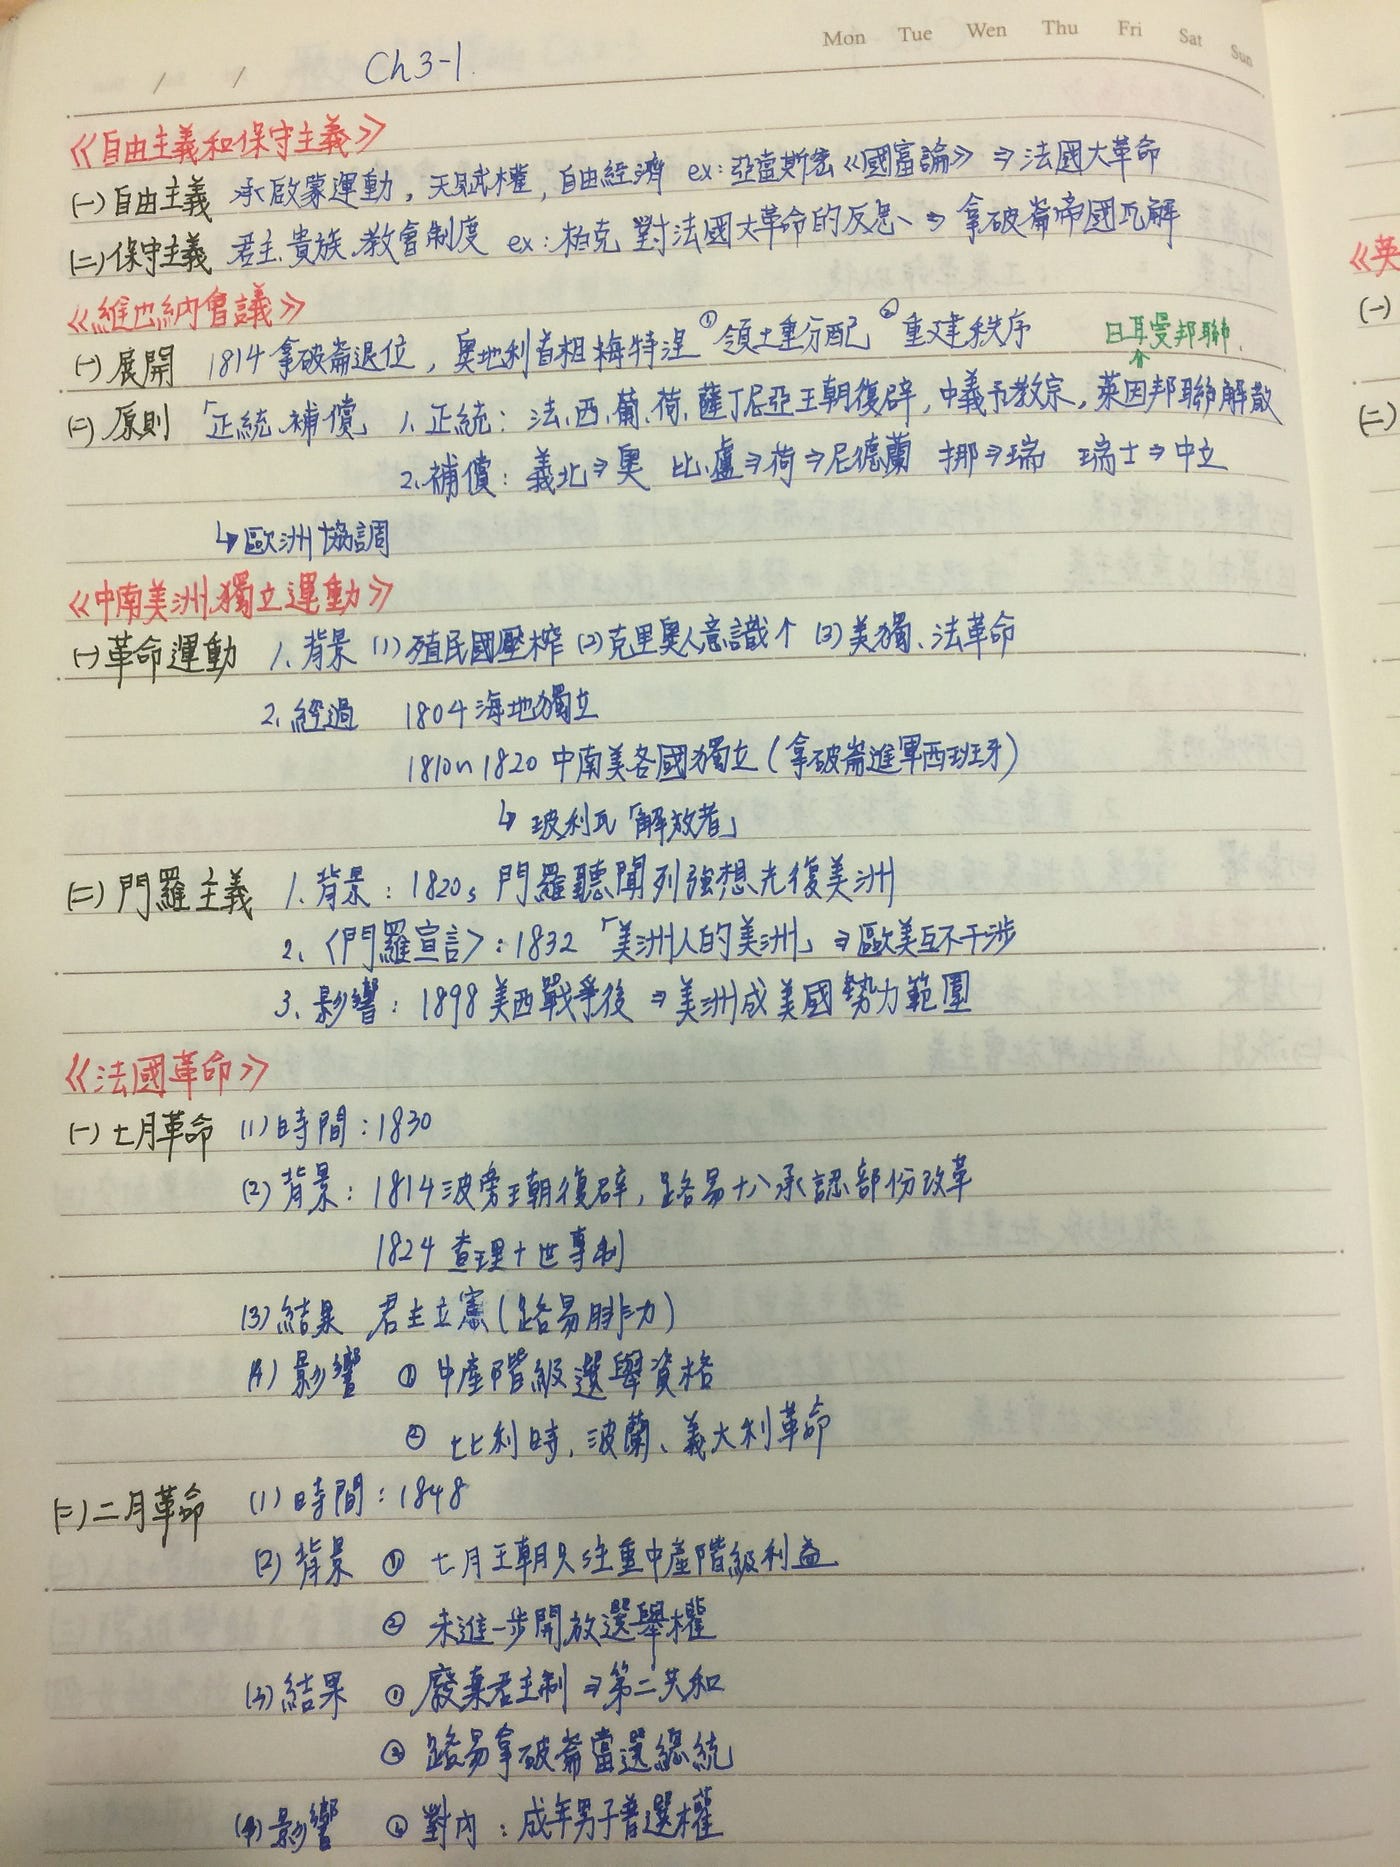 Mon Tue Wen Thu Fri Sat Sun
/ / Ch 3-1.
《自由主義和保守主義》
(一) 自由主義 承啟蒙運動, 天賦人權, 自由經濟 ex: 亞當斯密《國富論》 ⇒ 法國大革命
(二) 保守主義 君主、貴族、教會制度 ex: 柏克 對法國大革命的反思 ⇒ 拿破崙帝國瓦解
《維也納會議》
(一) 展開 1814 拿破崙退位, 奧地利首相梅特涅 ①領土重分配 ②重建秩序
日耳曼邦聯.
(二) 原則 「正統、補償」 1. 正統: 法、西、葡、荷、薩丁尼亞王朝復辟, 中義予教宗, 萊因邦聯解散
2. 補償: 義北⇒奧 比、盧⇒荷⇒尼德蘭 挪⇒瑞 瑞士⇒中立
↳ 歐洲協調
《中南美洲獨立運動》
(一) 革命運動 1. 背景 (1) 殖民國壓榨 (2) 克里奧人意識↑ (3) 美獨、法革命
2. 經過 1804 海地獨立
1810~1820 中南美各國獨立 (拿破崙進軍西班牙)
↳ 玻利瓦「解放者」
(二) 門羅主義 1. 背景: 1820s 門羅聽聞列強想光復美洲
2. 〈門羅宣言〉: 1832 「美洲人的美洲」 ⇒ 歐美互不干涉
3. 影響: 1898 美西戰爭後 ⇒ 美洲成美國勢力範圍
《法國革命》
(一) 七月革命 (1) 時間: 1830
(2) 背景: 1814 波旁王朝復辟, 路易十八承認部份改革
1824 查理十世專制
(3) 結果 君主立憲 (路易腓力)
(4) 影響 ① 中產階級選舉資格
② 比利時、波蘭、義大利革命
(二) 二月革命 (1) 時間: 1848
(2) 背景 ① 七月王朝只注重中產階級利益
② 未進一步開放選舉權
(3) 結果 ① 廢棄君主制 ⇒ 第二共和
② 路易拿破崙當選總統
(4) 影響 ① 對內: 成年男子普選權
《英
(一)
(二)